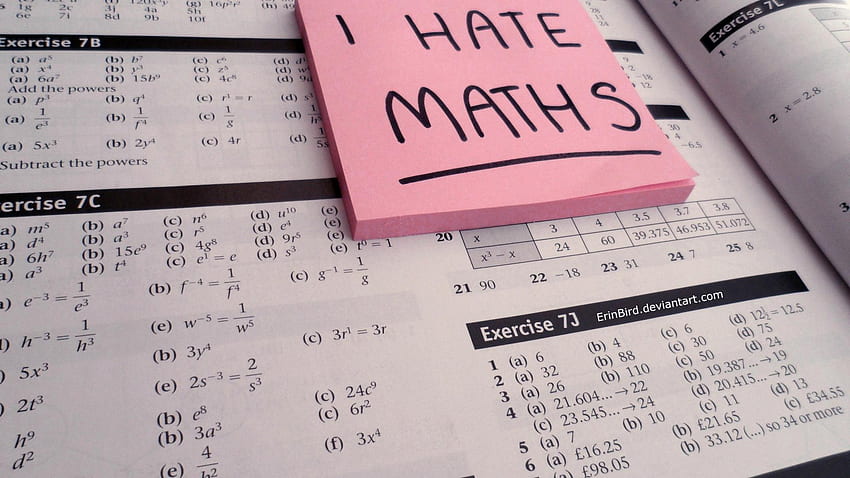 I HATE
MATHS
1g 2c 3i
6e 7i 8d 9b 10f
Exercise 7B
(a) a⁵ (b) b⁷ (c) c⁶
(a) x⁴ (b) y³ (c) z⁵
(a) 6a⁷ (b) 15b⁹ (c) 4c⁸
Add the powers
(a) p³ (b) q⁴ (c) r¹ = r
(a) 1/e³ (b) 1/f⁴ (c) 1/g
(a) 5x³ (b) 2y⁴ (c) 4r
Subtract the powers
ercise 7C
a) m⁵ (b) a⁷ (c) n⁶ (d) u¹⁰ (e)
a) d⁴ (b) a³ (c) r⁵ (d) e⁴ (e)
a) 6h⁷ (b) 15e⁹ (c) 4g⁸ (d) 9r⁵ (e)
a) a³ (b) t⁴ (c) e¹ = e (d) s³ (e) t⁰ = 1
) e⁻³ = 1/e³ (b) f⁻⁴ = 1/f⁴ (c) g⁻¹ = 1/g
) h⁻³ = 1/h³ (e) w⁻⁵ = 1/w⁵
) 5x³ (b) 3y⁴ (c) 3r¹ = 3r
) 2t³ (e) 2s⁻³ = 2/s³
h⁹ (b) e⁸ (c) 24c⁹
d² (b) 3a³ (c) 6r²
(e) 4/h² (f) 3x⁴
20 x 3 4 3.5 3.7 3.8
x³ − x 24 60 39.375 46.953 51.072
21 90 22 −18 23 31 24 7 25 8
Exercise 7J ErinBird.deviantart.com
1 (a) 6 (b) 4 (c) 6 (d) 12½ = 12.5
2 (a) 32 (b) 88 (c) 30 (d) 75
3 (a) 26 (b) 110 (c) 50 (d) 24
4 (a) 21.604... → 22 (b) 19.387... → 19
(c) 23.545... → 24 (d) 20.415... → 20
5 (a) 7 (b) 10 (c) 11 (d) 13
6 (a) £16.25 (b) £21.65 (c) £34.55
(a) £98.05 (b) 33.12 (...) so 34 or more
Exercise 7L
1 x = 4.6
2 x = 2.8
3